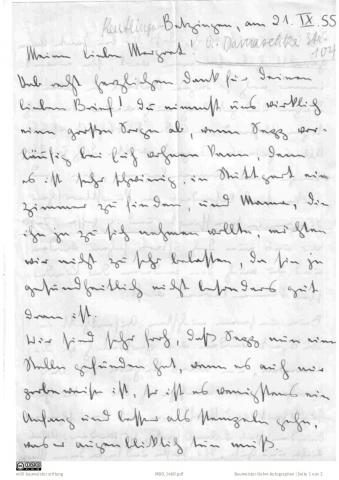 Reutlingen
Betzingen, am 21. IX. 55
Meine liebe Margret!
Hab recht herzlichen Dank für deinen
lieben Brief! Du nimmst uns wirklich
eine große Sorge ab, wenn vor-
läufig bei Euch wohnen kann, denn
es ist sehr schwierig, in Stuttgart ein
Zimmer zu finden, und Mama, die
ihn ja zu sich nehmen wollte, möchten
wir nicht zu sehr belasten, da sie ja
gesundheitlich nicht besonders gut
dran ist.
Wir sind sehr froh, daß nun eine
Stelle gefunden hat, wenn es auch nur
ist, so ist es wenigstens ein
Anfang und besser als Stempeln gehn,
was er augenblicklich tun muß.
CC
Baumeister-Archiv Autographen | Seite 1 von 2